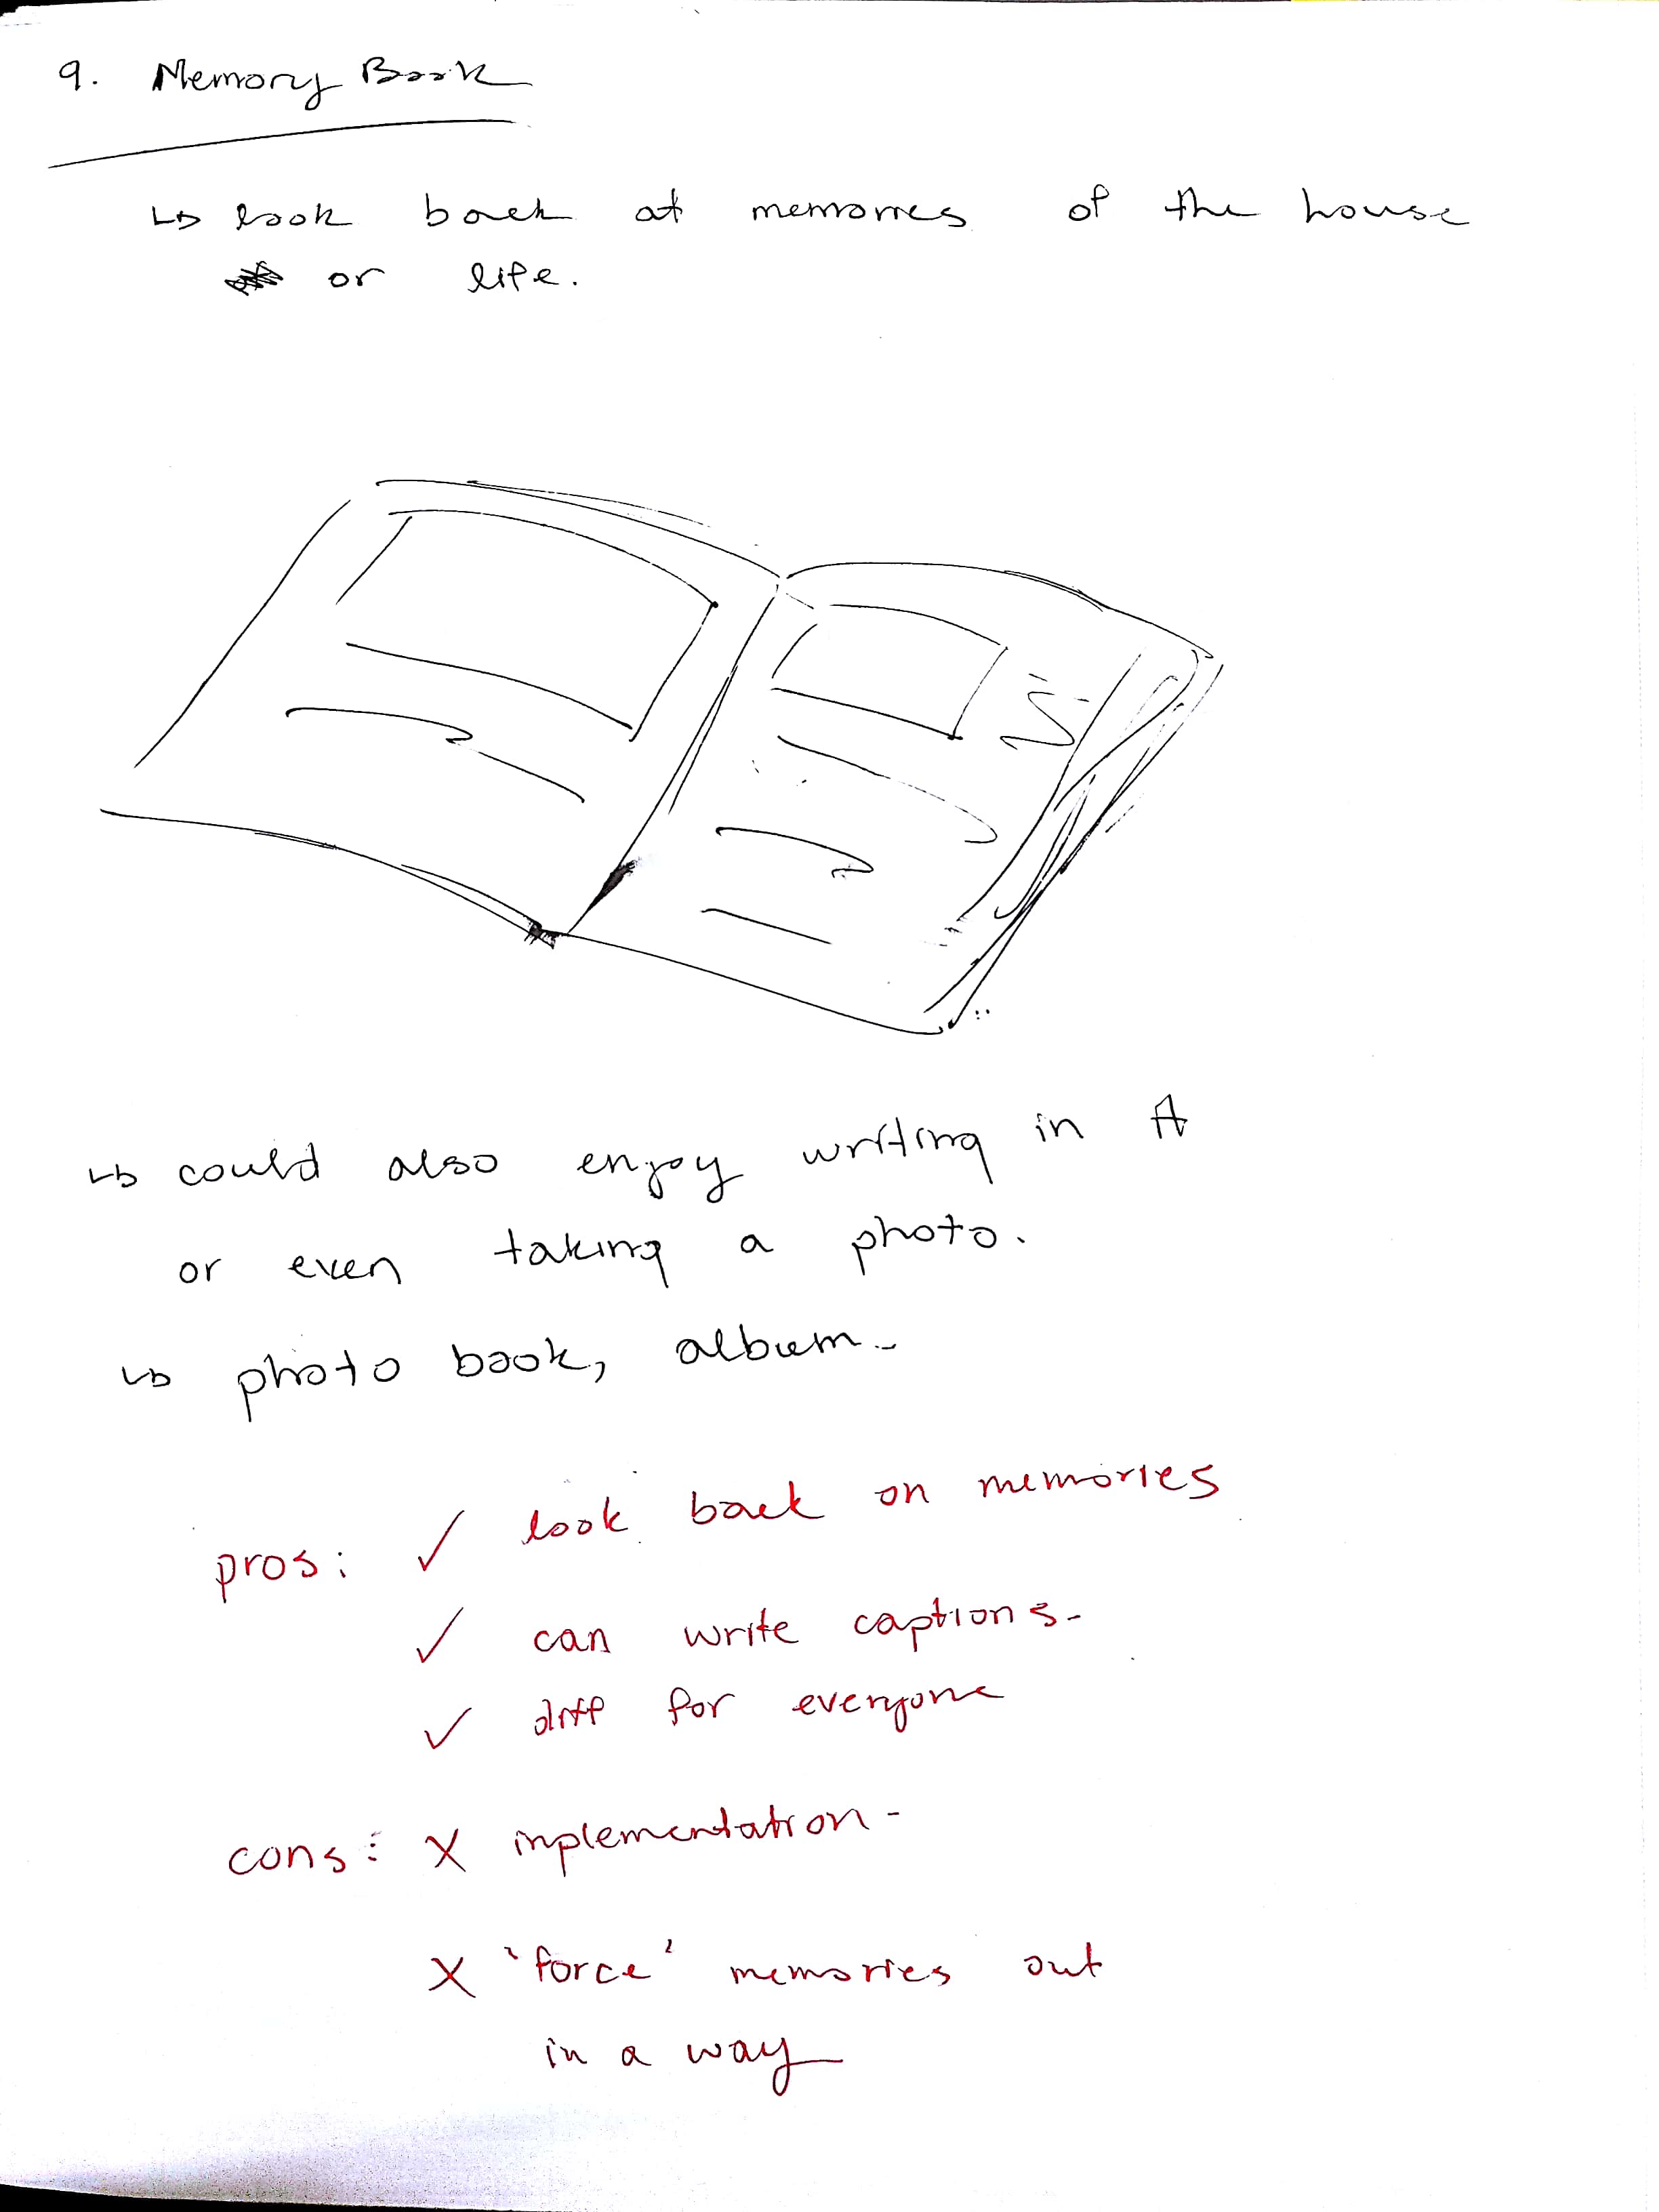 9. Memory Book
↳ look back at memories of the house
or life.
↳ could also enjoy writing in it
or even taking a photo.
↳ photo book, album.
pros: ✓ look back on memories
✓ can write captions.
✓ diff for everyone
cons: X implementation -
X 'force' memories out
in a way